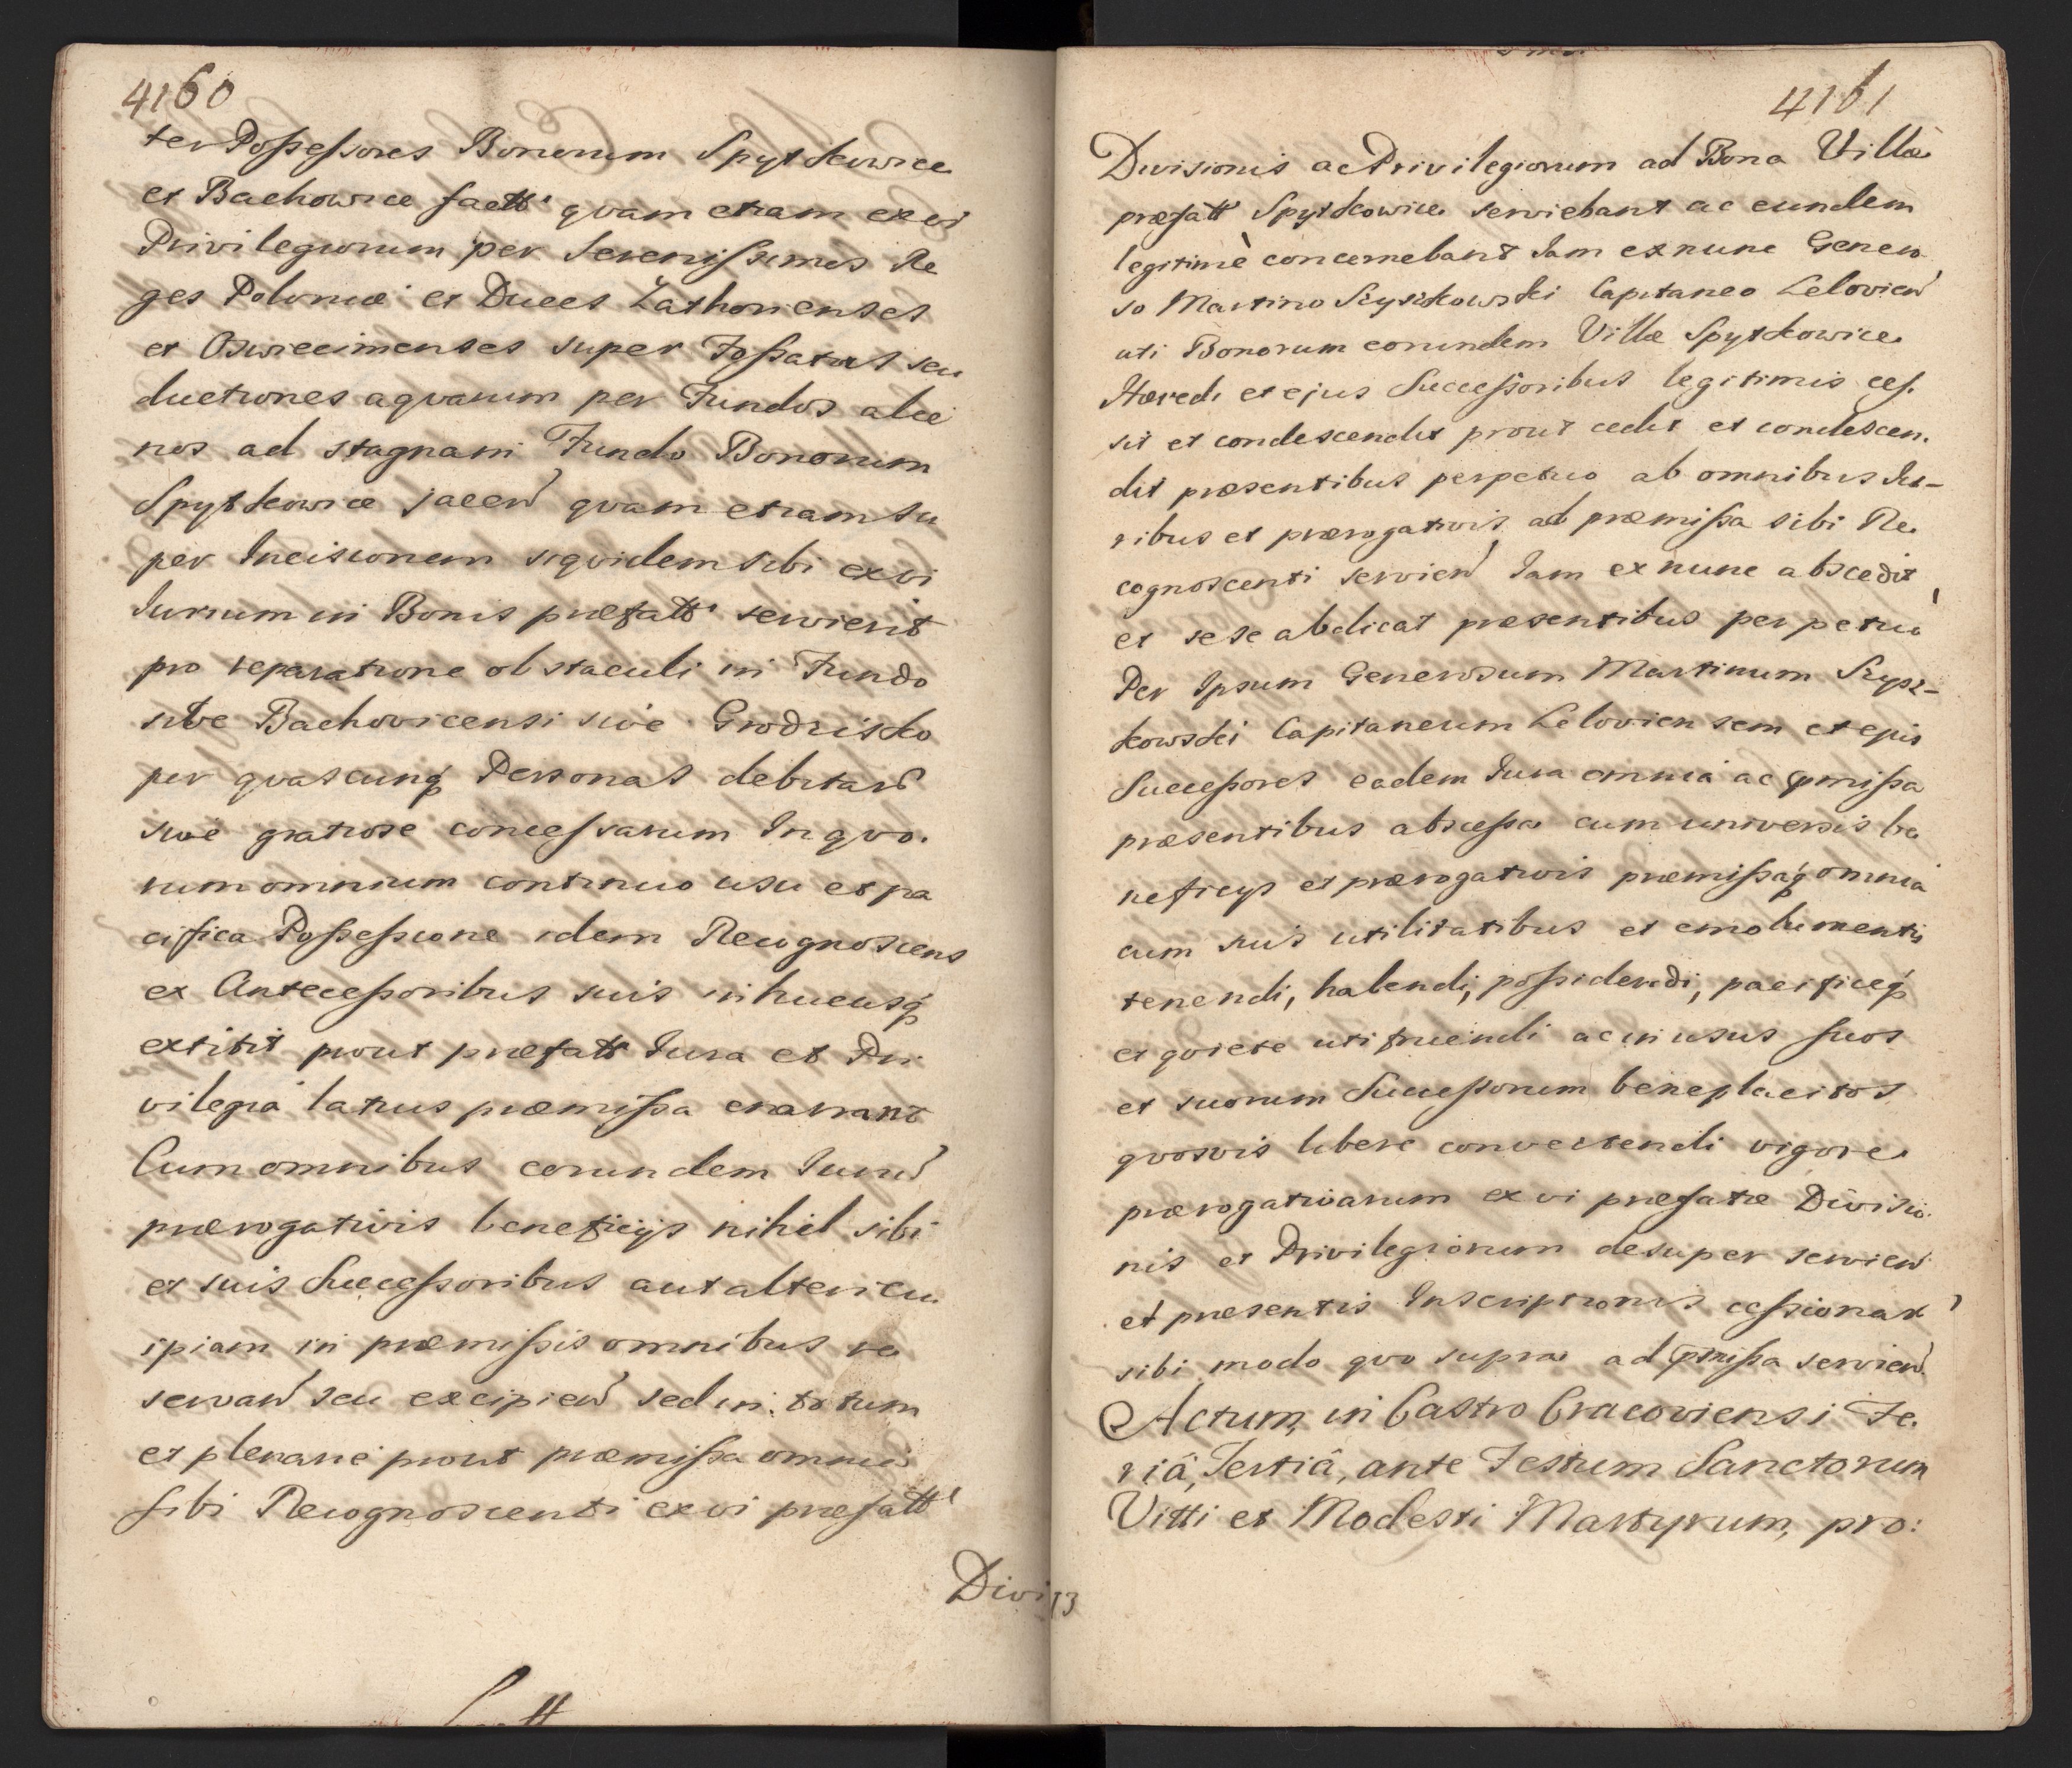 4160
ter Possessores Bonorum Spytkowice
et Bachowice fact' qvam etiam ex vi
Privilegiorum per Serenissimos Re
ges Poloniæ et Duces Zathorienses
et Oswiecimenses super Fossatas seu
ductiones aqvarum per Fundos alie
nos ad stagnam Fundo Bonorum
Spytkowice jacen qvam etiam su
per Incisionem siqvidem sibi ex vi
Iurium in Bonis præfatt' servient
pro reparatione obstaculi in Fundo
sive Bachovicensi sive Grodzisko
per qvascunq Personas debitar
sive gratiose concessarum In qvo.
rum omnium continuo usu et pa
cifica Possessione idem Recognoscens
ex Antecessoribus suis in hucusq
extitit prout præfatt Iura et Pri
vilegia latius præmissa enarrant
Cum omnibus eorundem Iuriu
prærogativis beneficijs nihil sibi
et suis Successoribus aut alteri cu
ipiam in præmissis omnibus re
servan seu excipien sed in totum
et plenarie prout præmissa omnia
sibi Recognoscenti ex vi præfatt'
Divis
4161
Divisionis ac Privilegiorum ad Bona Villæ
præfatt Spytkowice serviebant ac eundem
legitimè concernebant Iam ex nunc Genero
so Martino Szyszkowski Capitaneo Lelovien
uti Bonorum eorundem Villæ Spytkowice
Hæredi et ejus Successoribus legitimis ces.
sit et condescendit prout cedit et condescen.
dit præsentibus perpetuo ab omnibus Iu-
ribus et prærogativis ad præmissa sibi Re.
cognoscenti servien Iam ex nunc abscedit
et sese abdicat præsentibus perpetuò
Per Ipsum Generosum Martinum Szysz-
kowski Capitaneum Lelovien sem et ejus
Successores eadem Iura omnia ac pmissa
præsentibus abscessa cum universis be
neficijs et prærogativis præmissaq omnia
cum suis utilitatibus et emolumentis
tenendi, habendi, possidendi, pacificeq
et qviete utifruendi ac in usus suos
et suorum Successorum beneplacitos
qvosvis libere convertendi vigore
prærogativarum ex vi præfatæ Divisio.
nis et Privilegiorum desuper servien
et præsentis Inscriptionis cessionar
sibi modo qvo supra ad pmissa servien.
Actum, in Castro Cracoviensi Fe.
riâ, Tertiâ, ante Festum Sanctorum
Vitti et Modesti Martyrum, pro: